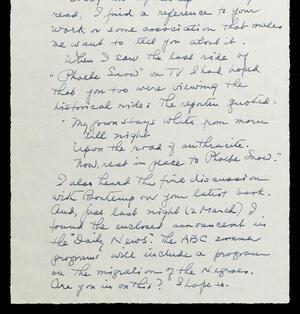 read, I find a reference to your
work or some association that makes
me want to tell you about it.
When I saw the last ride of
"Phoebe Snow" on TV I had hoped
that you too were viewing the
historical ride. The reporter quoted:
"My gown stays white from morn
till night
Upon the road of anthracite.
Now, rest in peace to Phoebe Snow."
I also heard the fine discussion
with Bontemp on your latest book.
And, just last night (2 March) I
found the enclosed announcement in
the "Daily News". The ABC summer
programs will include a program
on the migration of the Negroes.
Are you in on this? I hope so.